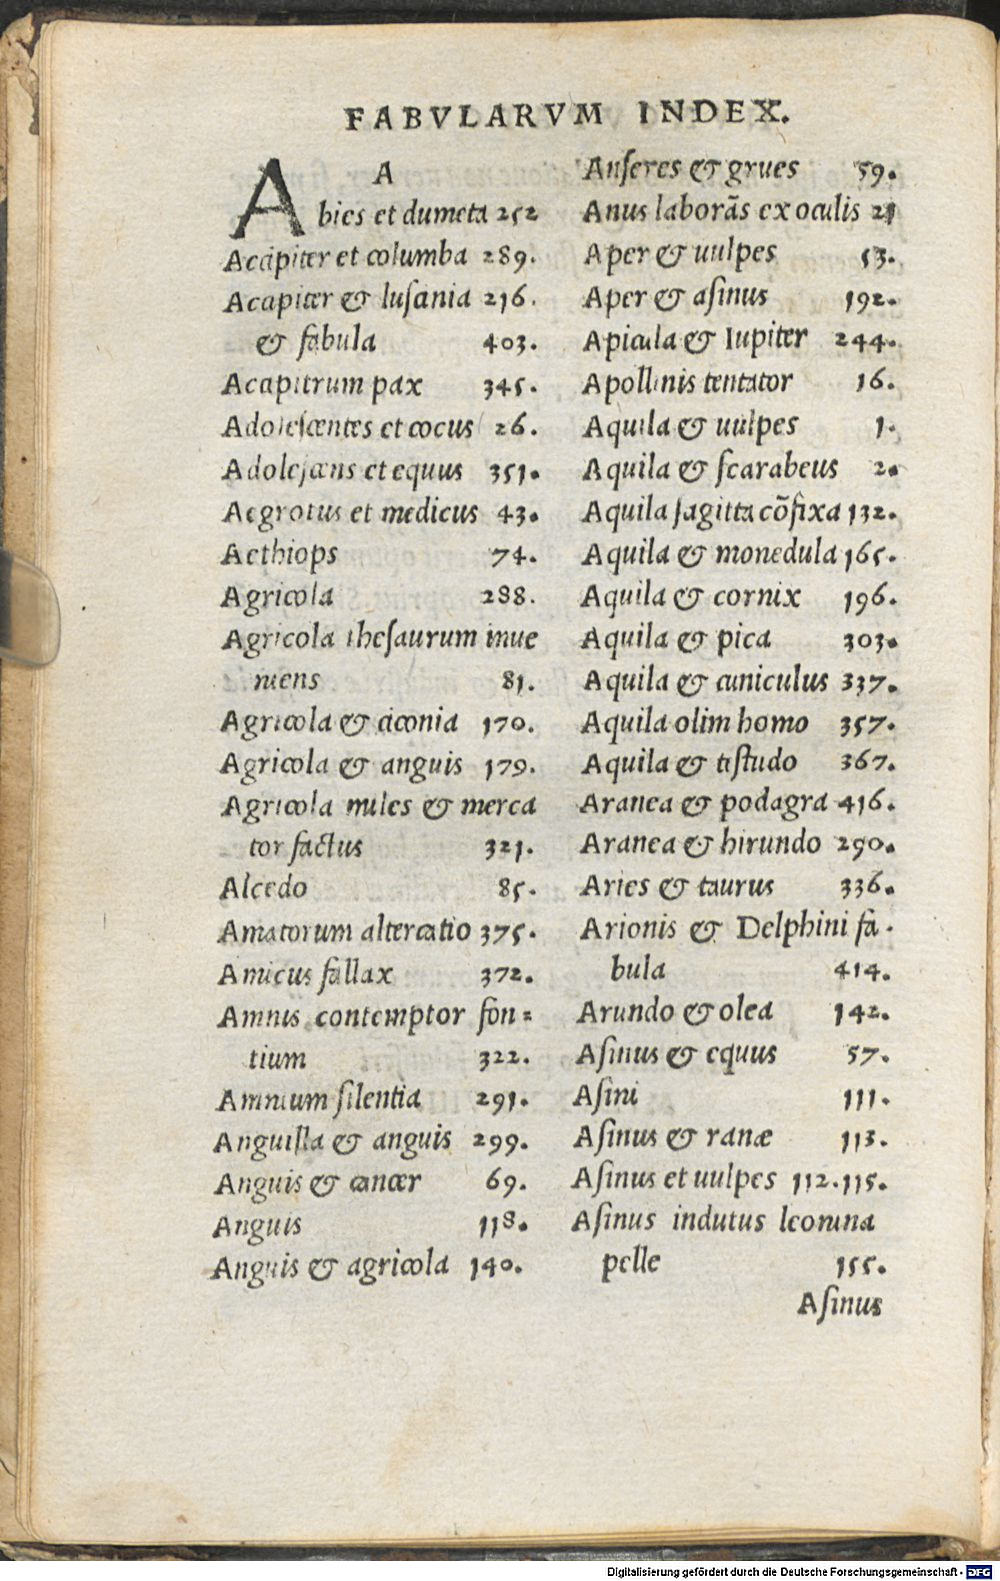 FABVLARVM INDEX.
A
Abies et dumeta 252
Acapiter et columba 289.
Acapiter & lusania 216.
& fabula 403.
Acapitrum pax 345.
Adolescentes et cocus 26.
Adolescens et equus 351.
Aegrotus et medicus 43.
Aethiops 74.
Agricola 288.
Agricola thesaurum inue
niens 81.
Agricola & ciconia 170.
Agricola & anguis 179.
Agricola miles & merca
tor factus 321.
Alcedo 85.
Amatorum altercatio 375.
Amicus fallax 372.
Amnis contemptor fon=
tium 322.
Amnium silentia 291.
Anguilla & anguis 299.
Anguis & cancer 69.
Anguis 118.
Anguis & agricola 140.
Anseres & grues 59.
Anus laborãs ex oculis 21
Aper & uulpes 53.
Aper & asinus 192.
Apicula & Iupiter 244.
Apollinis tentator 16.
Aquila & uulpes 1.
Aquila & scarabeus 2.
Aquila sagitta cõfixa 132.
Aquila & monedula 165.
Aquila & cornix 196.
Aquila & pica 303.
Aquila & cuniculus 337.
Aquila olim homo 357.
Aquila & testudo 367.
Aranea & podagra 416.
Aranea & hirundo 290.
Aries & taurus 336.
Arionis & Delphini fa-
bula 414.
Arundo & olea 142.
Asinus & equus 57.
Asini 111.
Asinus & ranæ 113.
Asinus et uulpes 112.115.
Asinus indutus leonina
pelle 155.
Asinus
Digitalisierung gefördert durch die Deutsche Forschungsgemeinschaft - DFG